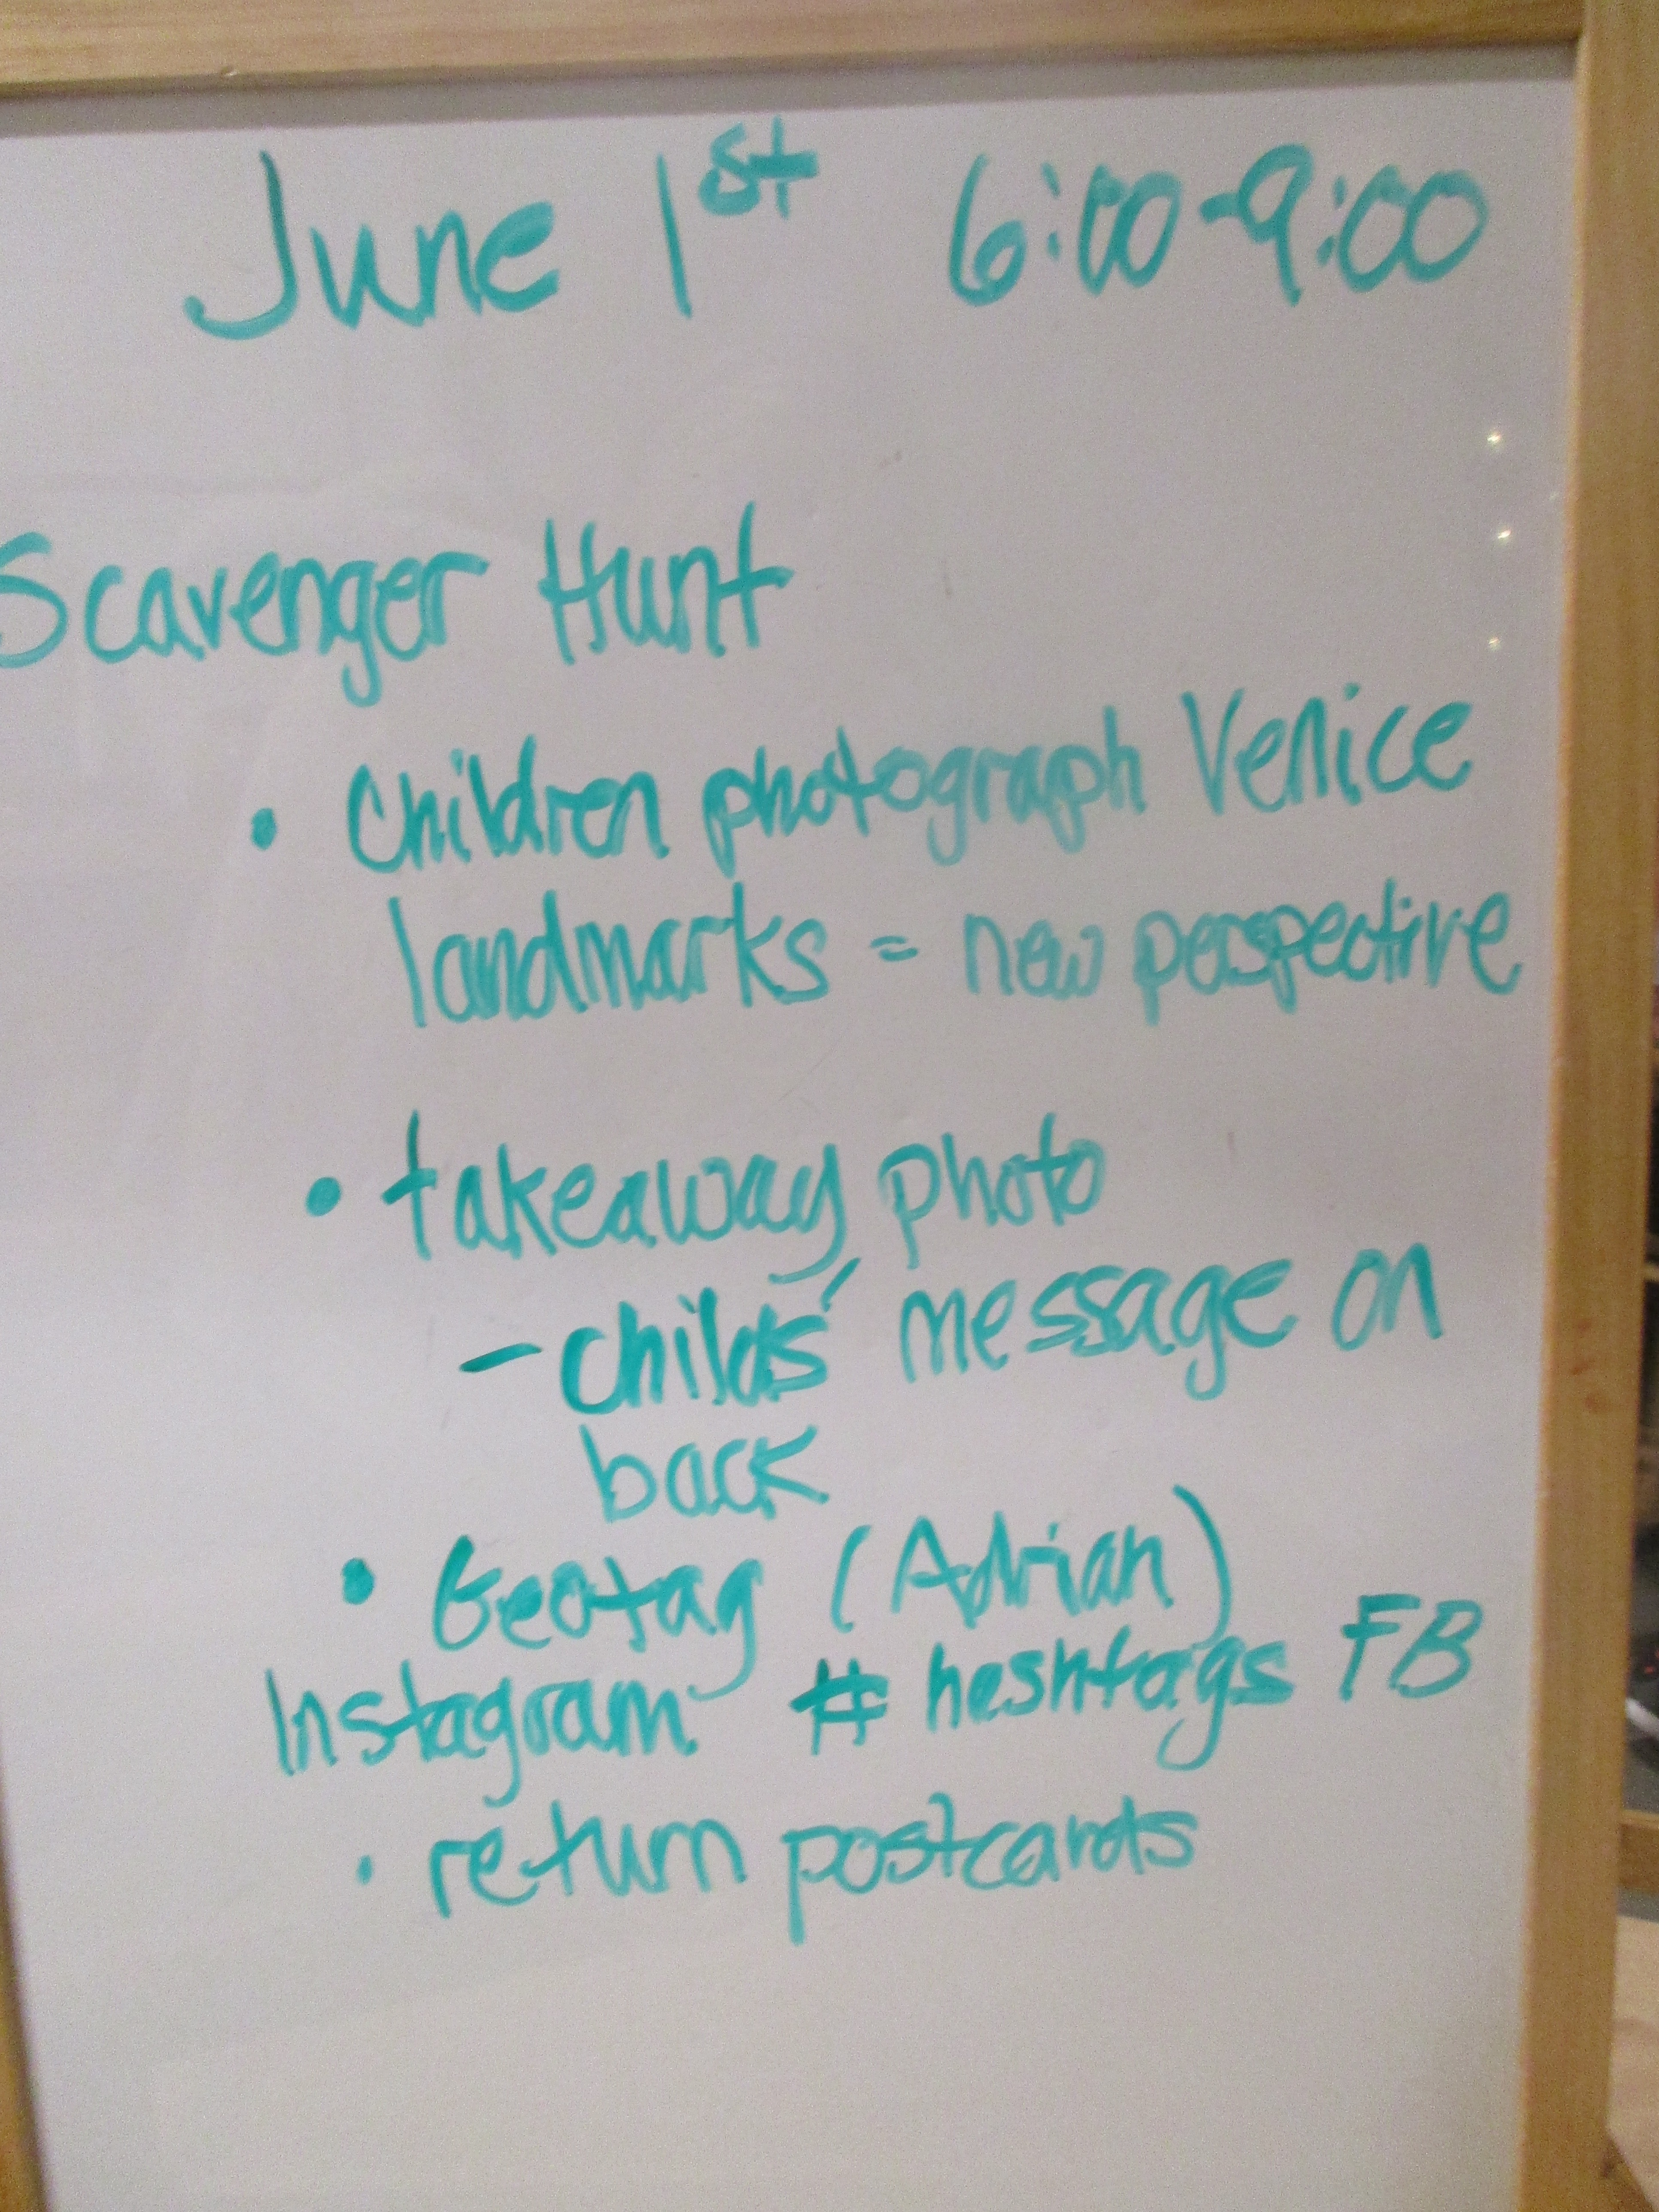 June 1st 6:00-9:00
Scavenger Hunt
• Children photograph Venice
landmarks = new perspective
• takeaway photo
- childs' message on
back
• Geotag (Adrian)
Instagram # heshtags FB
• return postcards